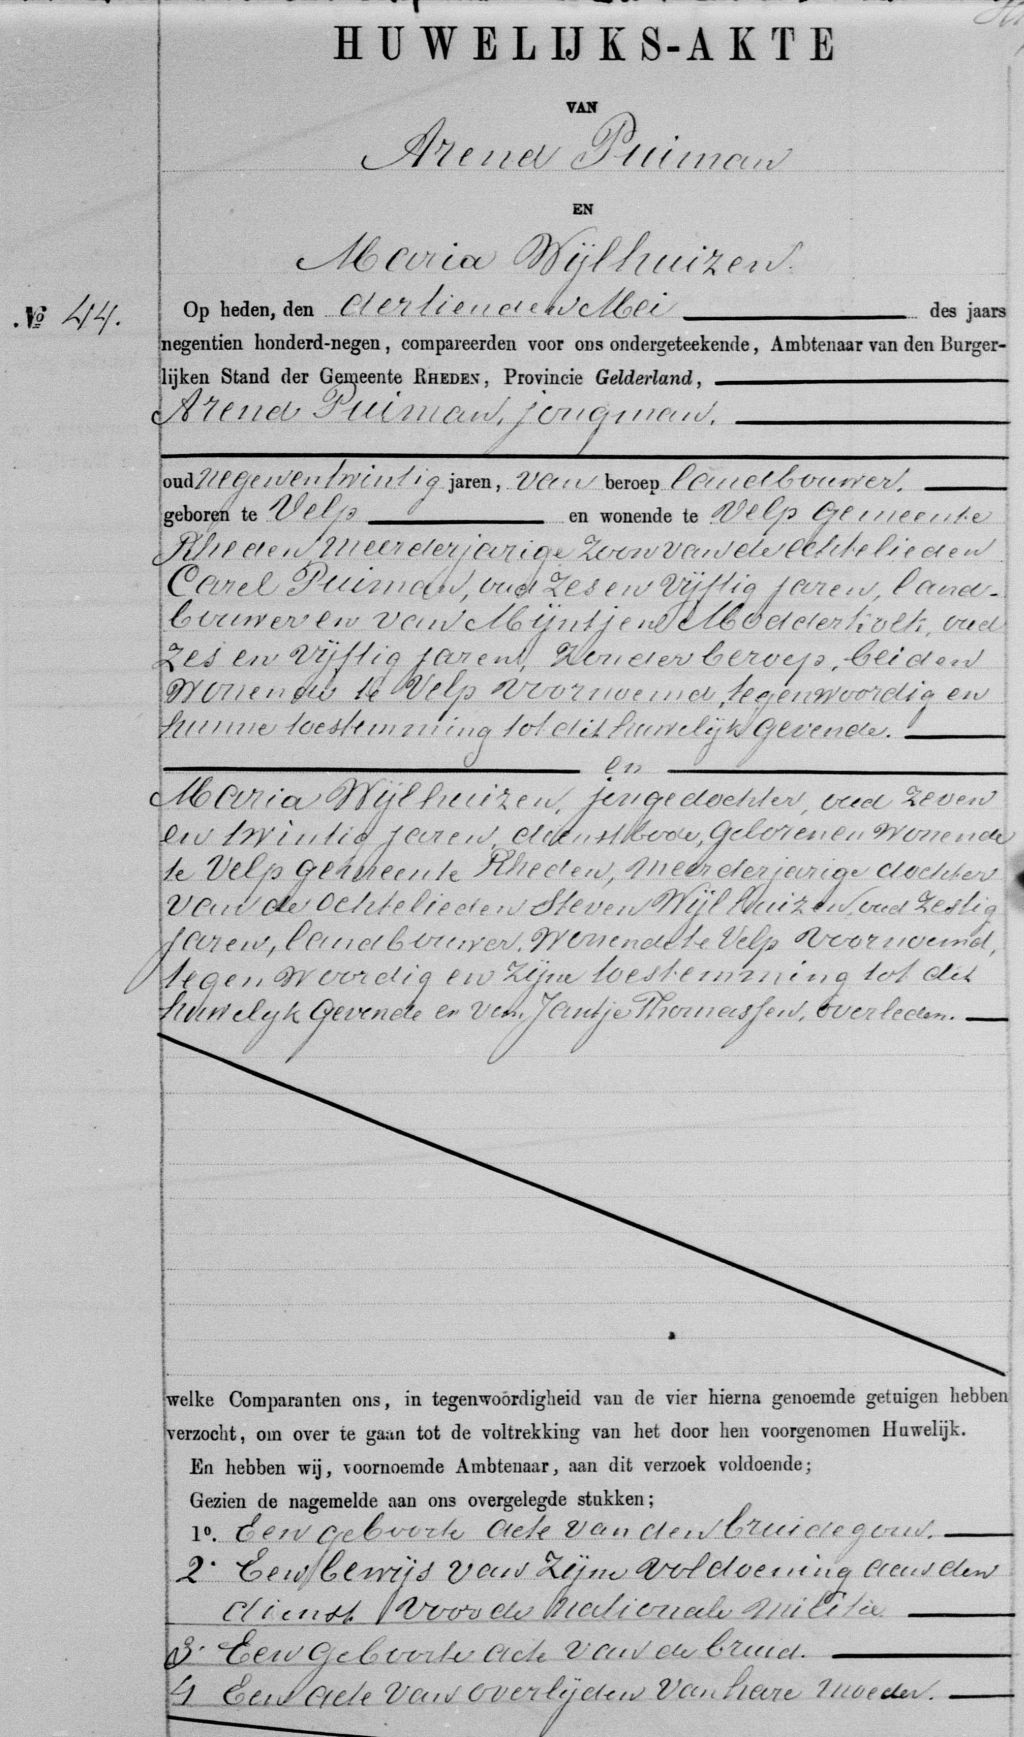 HUWELIJKS-AKTE
VAN
Arend Puiman
EN
Maria Wijlhuizen.
No 44.
Op heden, den dertienden Mei des jaars
negentien honderd-negen, compareerden voor ons ondergeteekende, Ambtenaar van den Burger-
lijken Stand der Gemeente RHEDEN, Provincie Gelderland,
Arend Puiman, jongman,
oud negenentwintig jaren, van beroep landbouwer,
geboren te Velp en wonende te Velp gemeente
Rheden, meerderjarige zoon van de echtelieden
Carel Puiman, oud zes en vijftig jaren, land-
bouwer en van Mijntjen Modderkolk, oud
zes en vijftig jaren, zonder beroep, beiden
wonende te Velp voornoemd, tegenwoordig en
hunne toestemming tot dit huwelijk gevende.
en
Maria Wijlhuizen, jongedochter, oud zeven
en twintig jaren, dienstbode, geboren en wonende
te Velp gemeente Rheden, meerderjarige dochter
van de echtelieden Steven Wijlhuizen, oud zestig
jaren, landbouwer, wonende te Velp voornoemd,
tegenwoordig en zijne toestemming tot dit
huwelijk gevende en van Jantje Thomassen, overleden.
welke Comparanten ons, in tegenwoordigheid van de vier hierna genoemde getuigen hebben
verzocht, om over te gaan tot de voltrekking van het door hen voorgenomen Huwelijk.
En hebben wij, voornoemde Ambtenaar, aan dit verzoek voldoende;
Gezien de nagemelde aan ons overgelegde stukken;
1o. Een geboorte acte van den bruidegom.
2. Een bewijs van zijne voldoening aan den
dienst voor de nationale militie
3. Een geboorte acte van de bruid.
4 Een acte van overlijden van hare moeder.